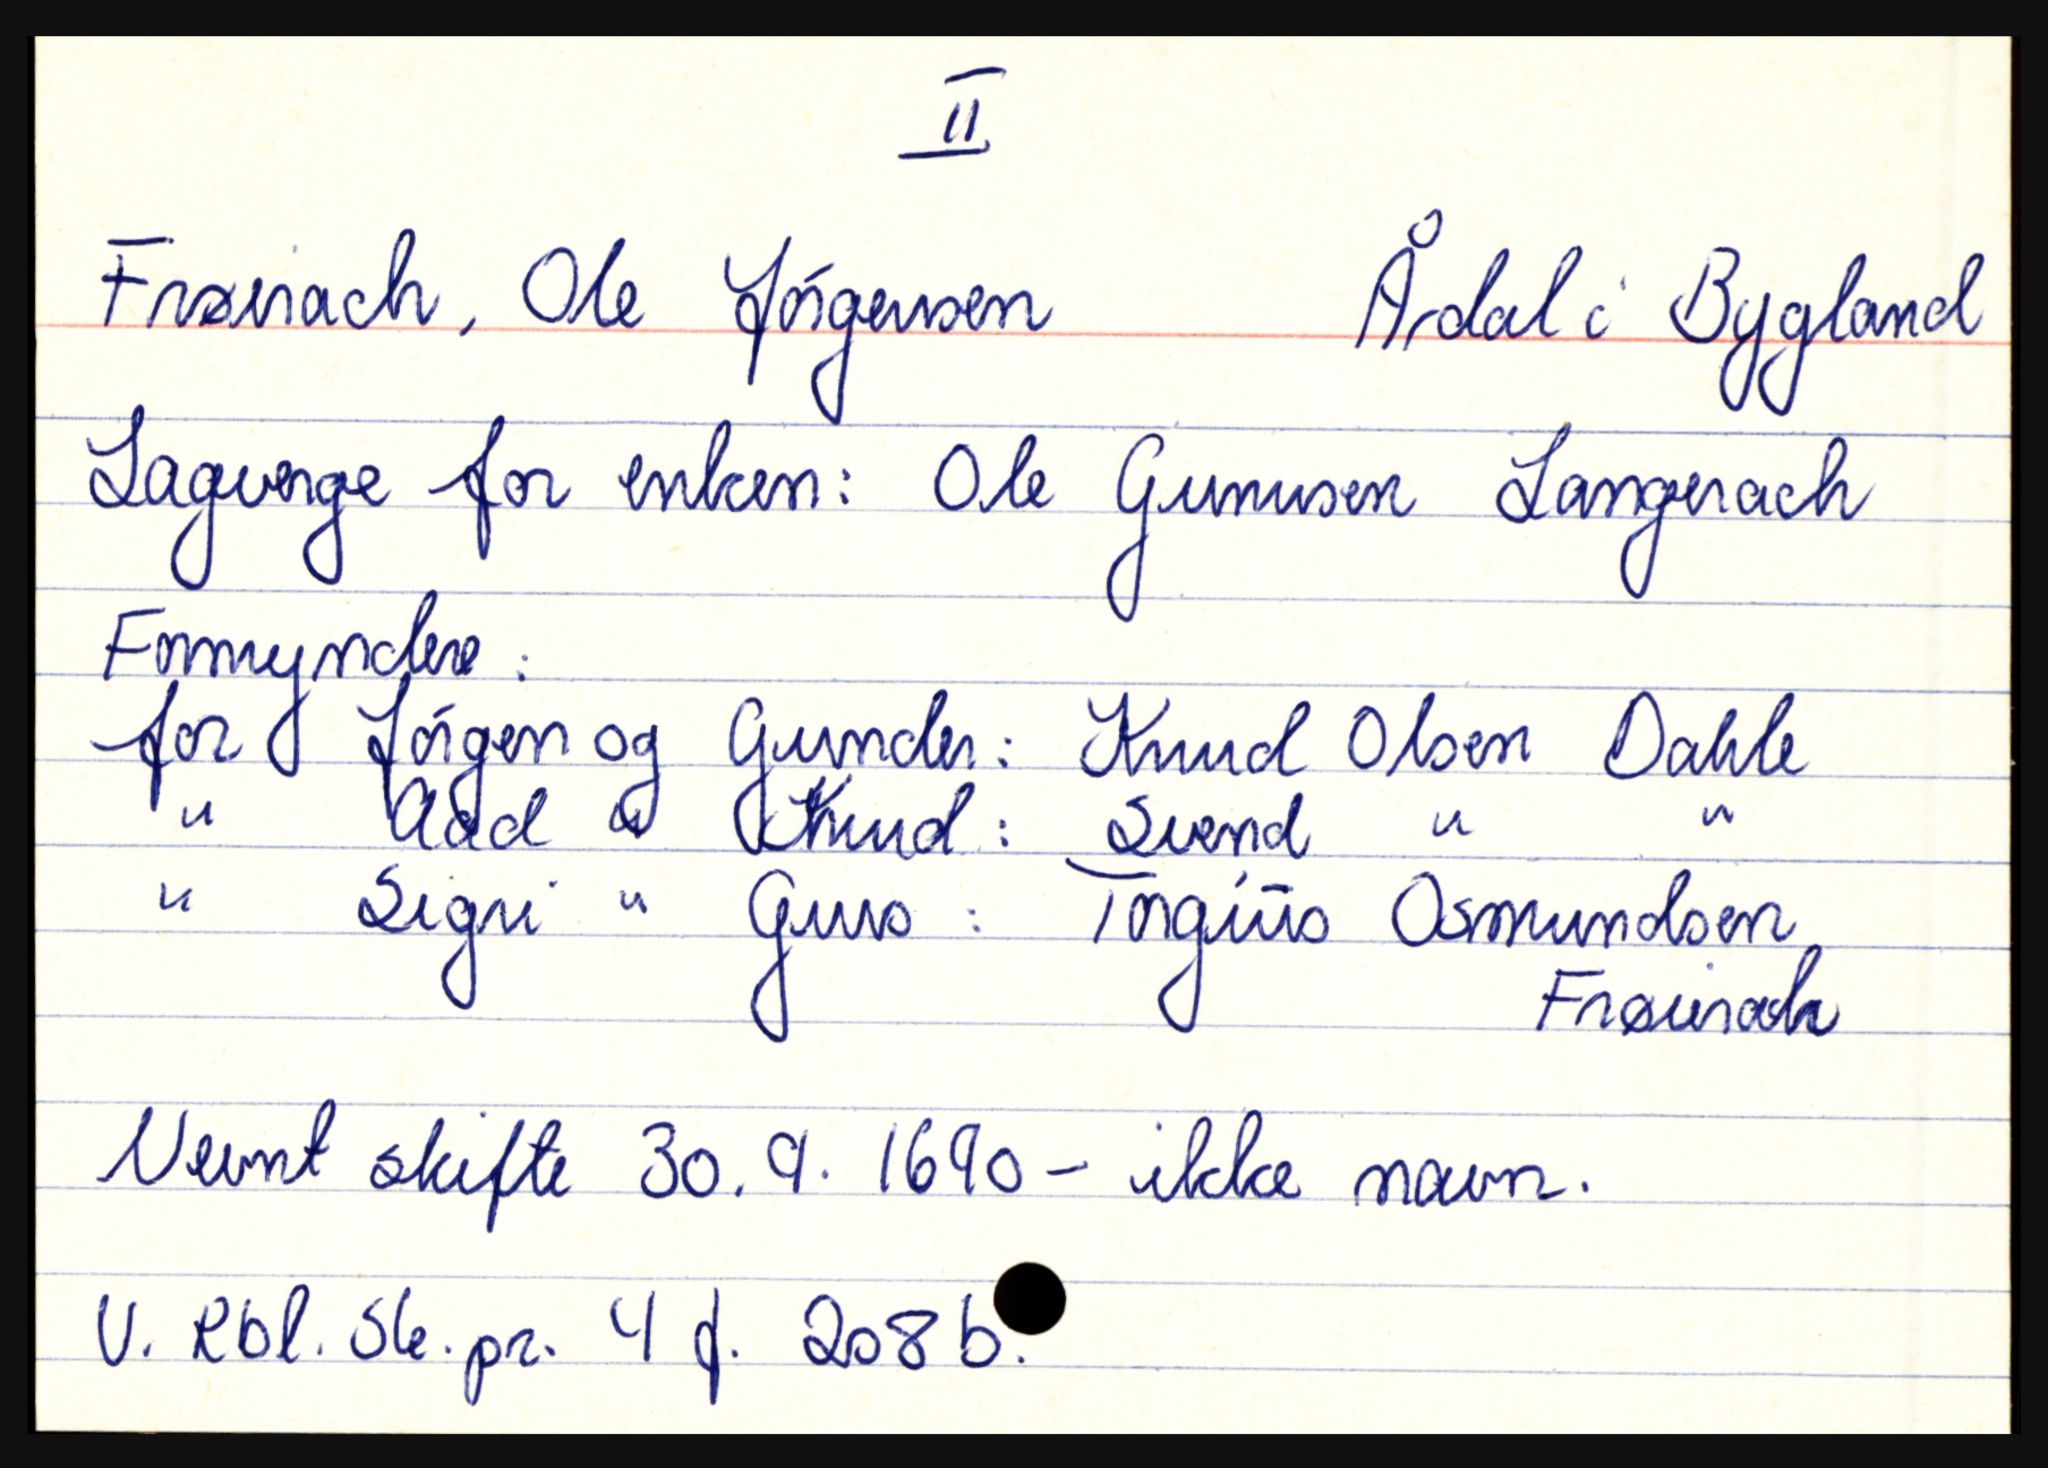 II
Frøirach, Ole Jórgensen Årdal i Bygland
Lagverge for enken: Ole Gunnsen Langerach
Formyndere:
for Jórgen og Gunder: Knud Olsen Dahle
" Aad " Knud: Svend " "
" Sigri " Guro: Torgiüs Osmundsen
Frøirach
Nevnt skifte 30.9.1690 - ikke navn.
V. Rbl. Sk. pr. 4 f. 208 b.